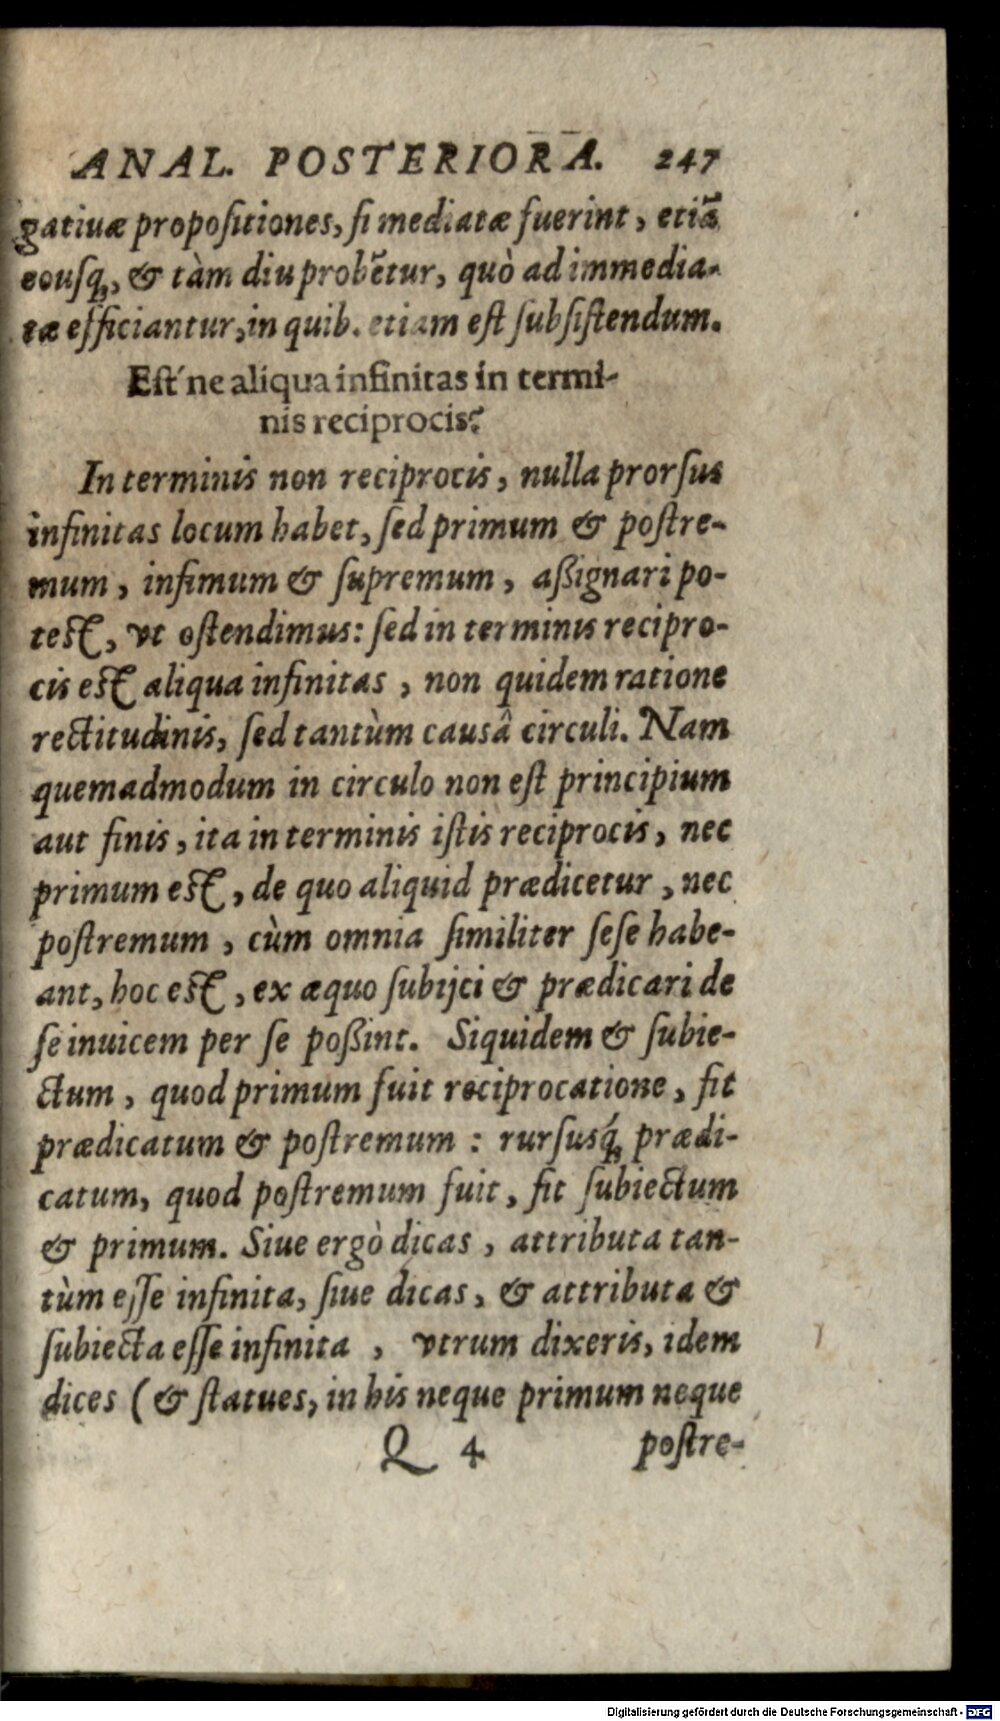 ANAL. POSTERIORA. 247
gatiuæ propoſitiones, ſi mediatæ fuerint, etiā
eouſq́;, & tàm diu probētur, quò ad immedia-
tæ efficiantur, in quib. etiam eſt ſubſiſtendum.
Eſt'ne aliqua infinitas in termi-
nis reciprocis?
In terminis non reciprocis, nulla prorſus
infinitas locum habet, ſed primum & poſtre-
mum, infimum & ſupremum, aßignari po-
teſt, vt oſtendimus: ſed in terminis recipro-
cis eſt aliqua infinitas, non quidem ratione
rectitudinis, ſed tantùm causâ circuli. Nam
quemadmodum in circulo non eſt principium
aut finis, ita in terminis iſtis reciprocis, nec
primum eſt, de quo aliquid prædicetur, nec
poſtremum, cùm omnia ſimiliter ſeſe habe-
ant, hoc eſt, ex æquo ſubijci & prædicari de
ſe inuicem per ſe poßint. Siquidem & ſubie-
ctum, quod primum fuit reciprocatione, fit
prædicatum & poſtremum : rurſusq́; prædi-
catum, quod poſtremum fuit, fit ſubiectum
& primum. Siue ergò dicas, attributa tan-
tùm eſſe infinita, ſiue dicas, & attributa &
ſubiecta eſſe infinita, vtrum dixeris, idem
dices (& ſtatues, in his neque primum neque
Q 4 poſtre-
Digitalisierung gefördert durch die Deutsche Forschungsgemeinschaft - DFG